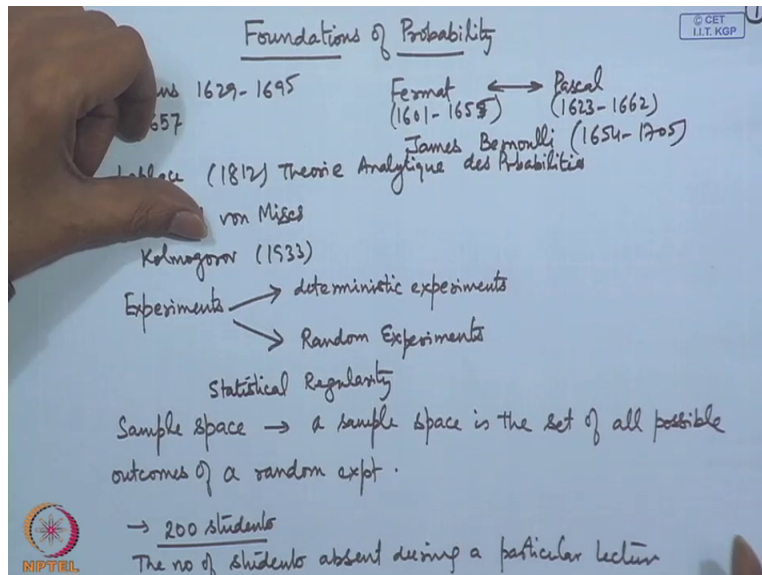 1
© CET
I.I.T. KGP
Foundations of Probability
1629-1695 Fermat ⟷ Pascal
1657 (1601-1655) (1623-1662)
James Bernoulli (1654-1705)
(1812) Theorie Analytique des Probabilities
von Mises
Kolmogorov (1933)
Experiments → deterministic experiments
→ Random Experiments
Statistical Regularity
Sample space → a sample space is the set of all possible
outcomes of a random expt.
→ 200 students
The no of students absent during a particular lecture
NPTEL